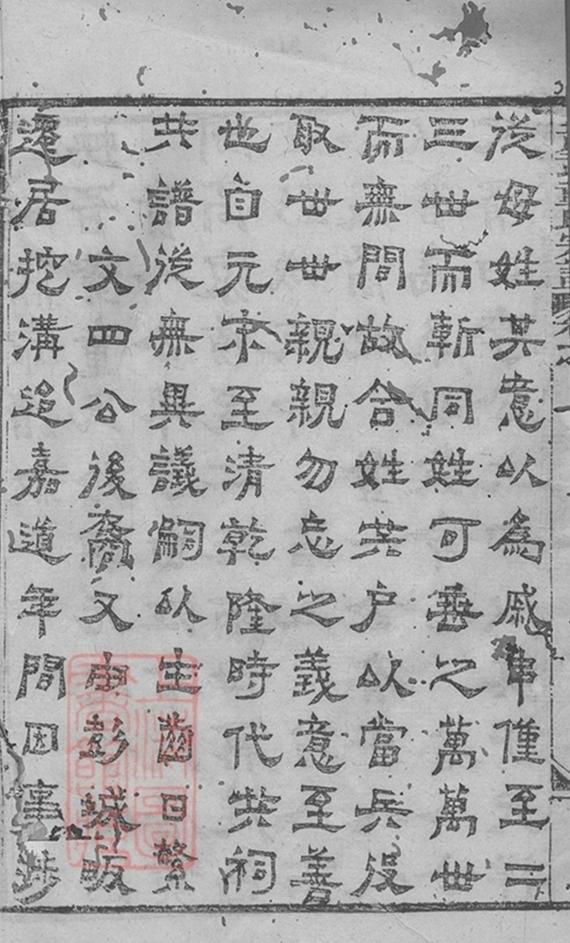 從母姓其意以為戚串僅至二
三世而斬同姓可垂之萬萬世
而無間故合姓共戶以當兵役
取世世親親勿忘之義意至善
也自元末至清乾隆時代共祠
共譜從無異議嗣以生齒日繁
文四公後裔又由彭城畈
遷居挖溝迨嘉道年間因事涉